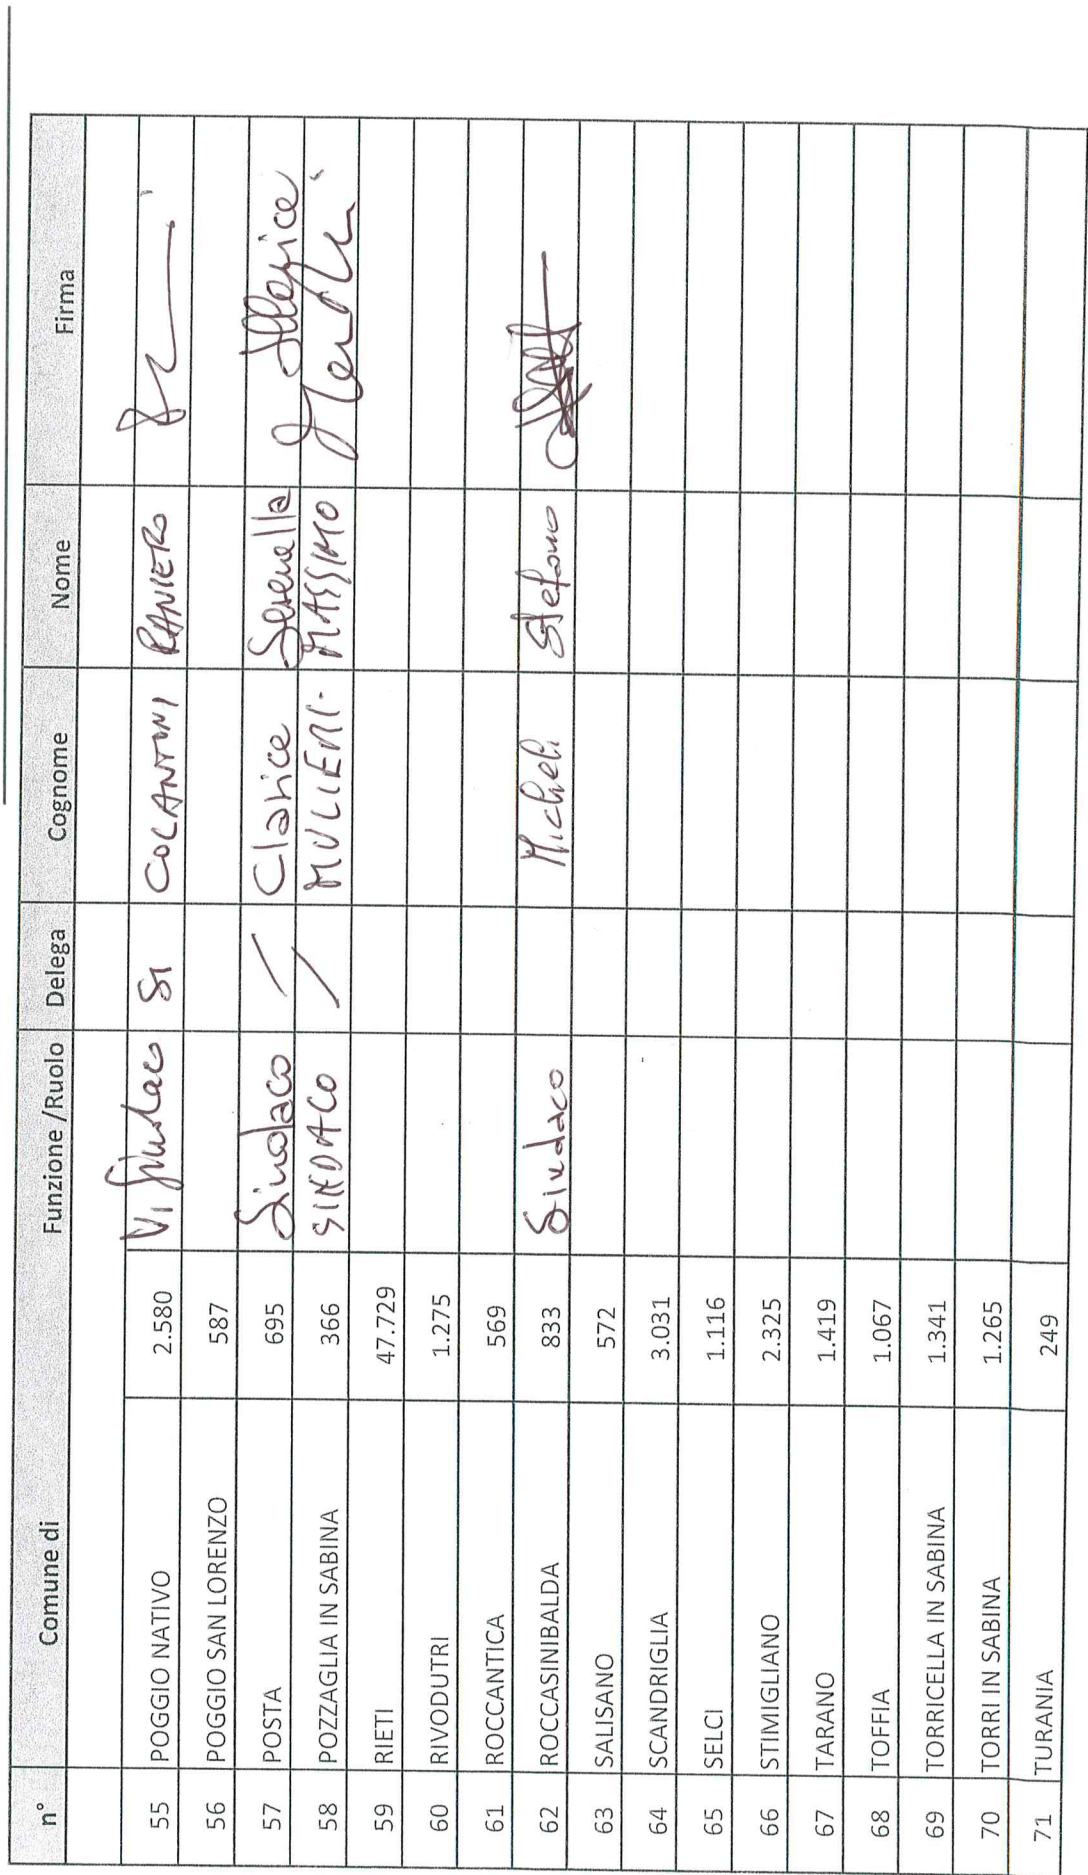 n° Comune di Funzione /Ruolo Delega Cognome Nome Firma
55 POGGIO NATIVO 2.580 Vi Sindaco SI COLANTONI RANIERO
56 POGGIO SAN LORENZO 587
57 POSTA 695 Sindaco / Clarice Serenella
58 POZZAGLIA IN SABINA 366 SINDACO / MULIERI MASSIMO
59 RIETI 47.729
60 RIVODUTRI 1.275
61 ROCCANTICA 569
62 ROCCASINIBALDA 833 Sindaco Micheli Stefano
63 SALISANO 572
64 SCANDRIGLIA 3.031
65 SELCI 1.116
66 STIMIGLIANO 2.325
67 TARANO 1.419
68 TOFFIA 1.067
69 TORRICELLA IN SABINA 1.341
70 TORRI IN SABINA 1.265
71 TURANIA 249